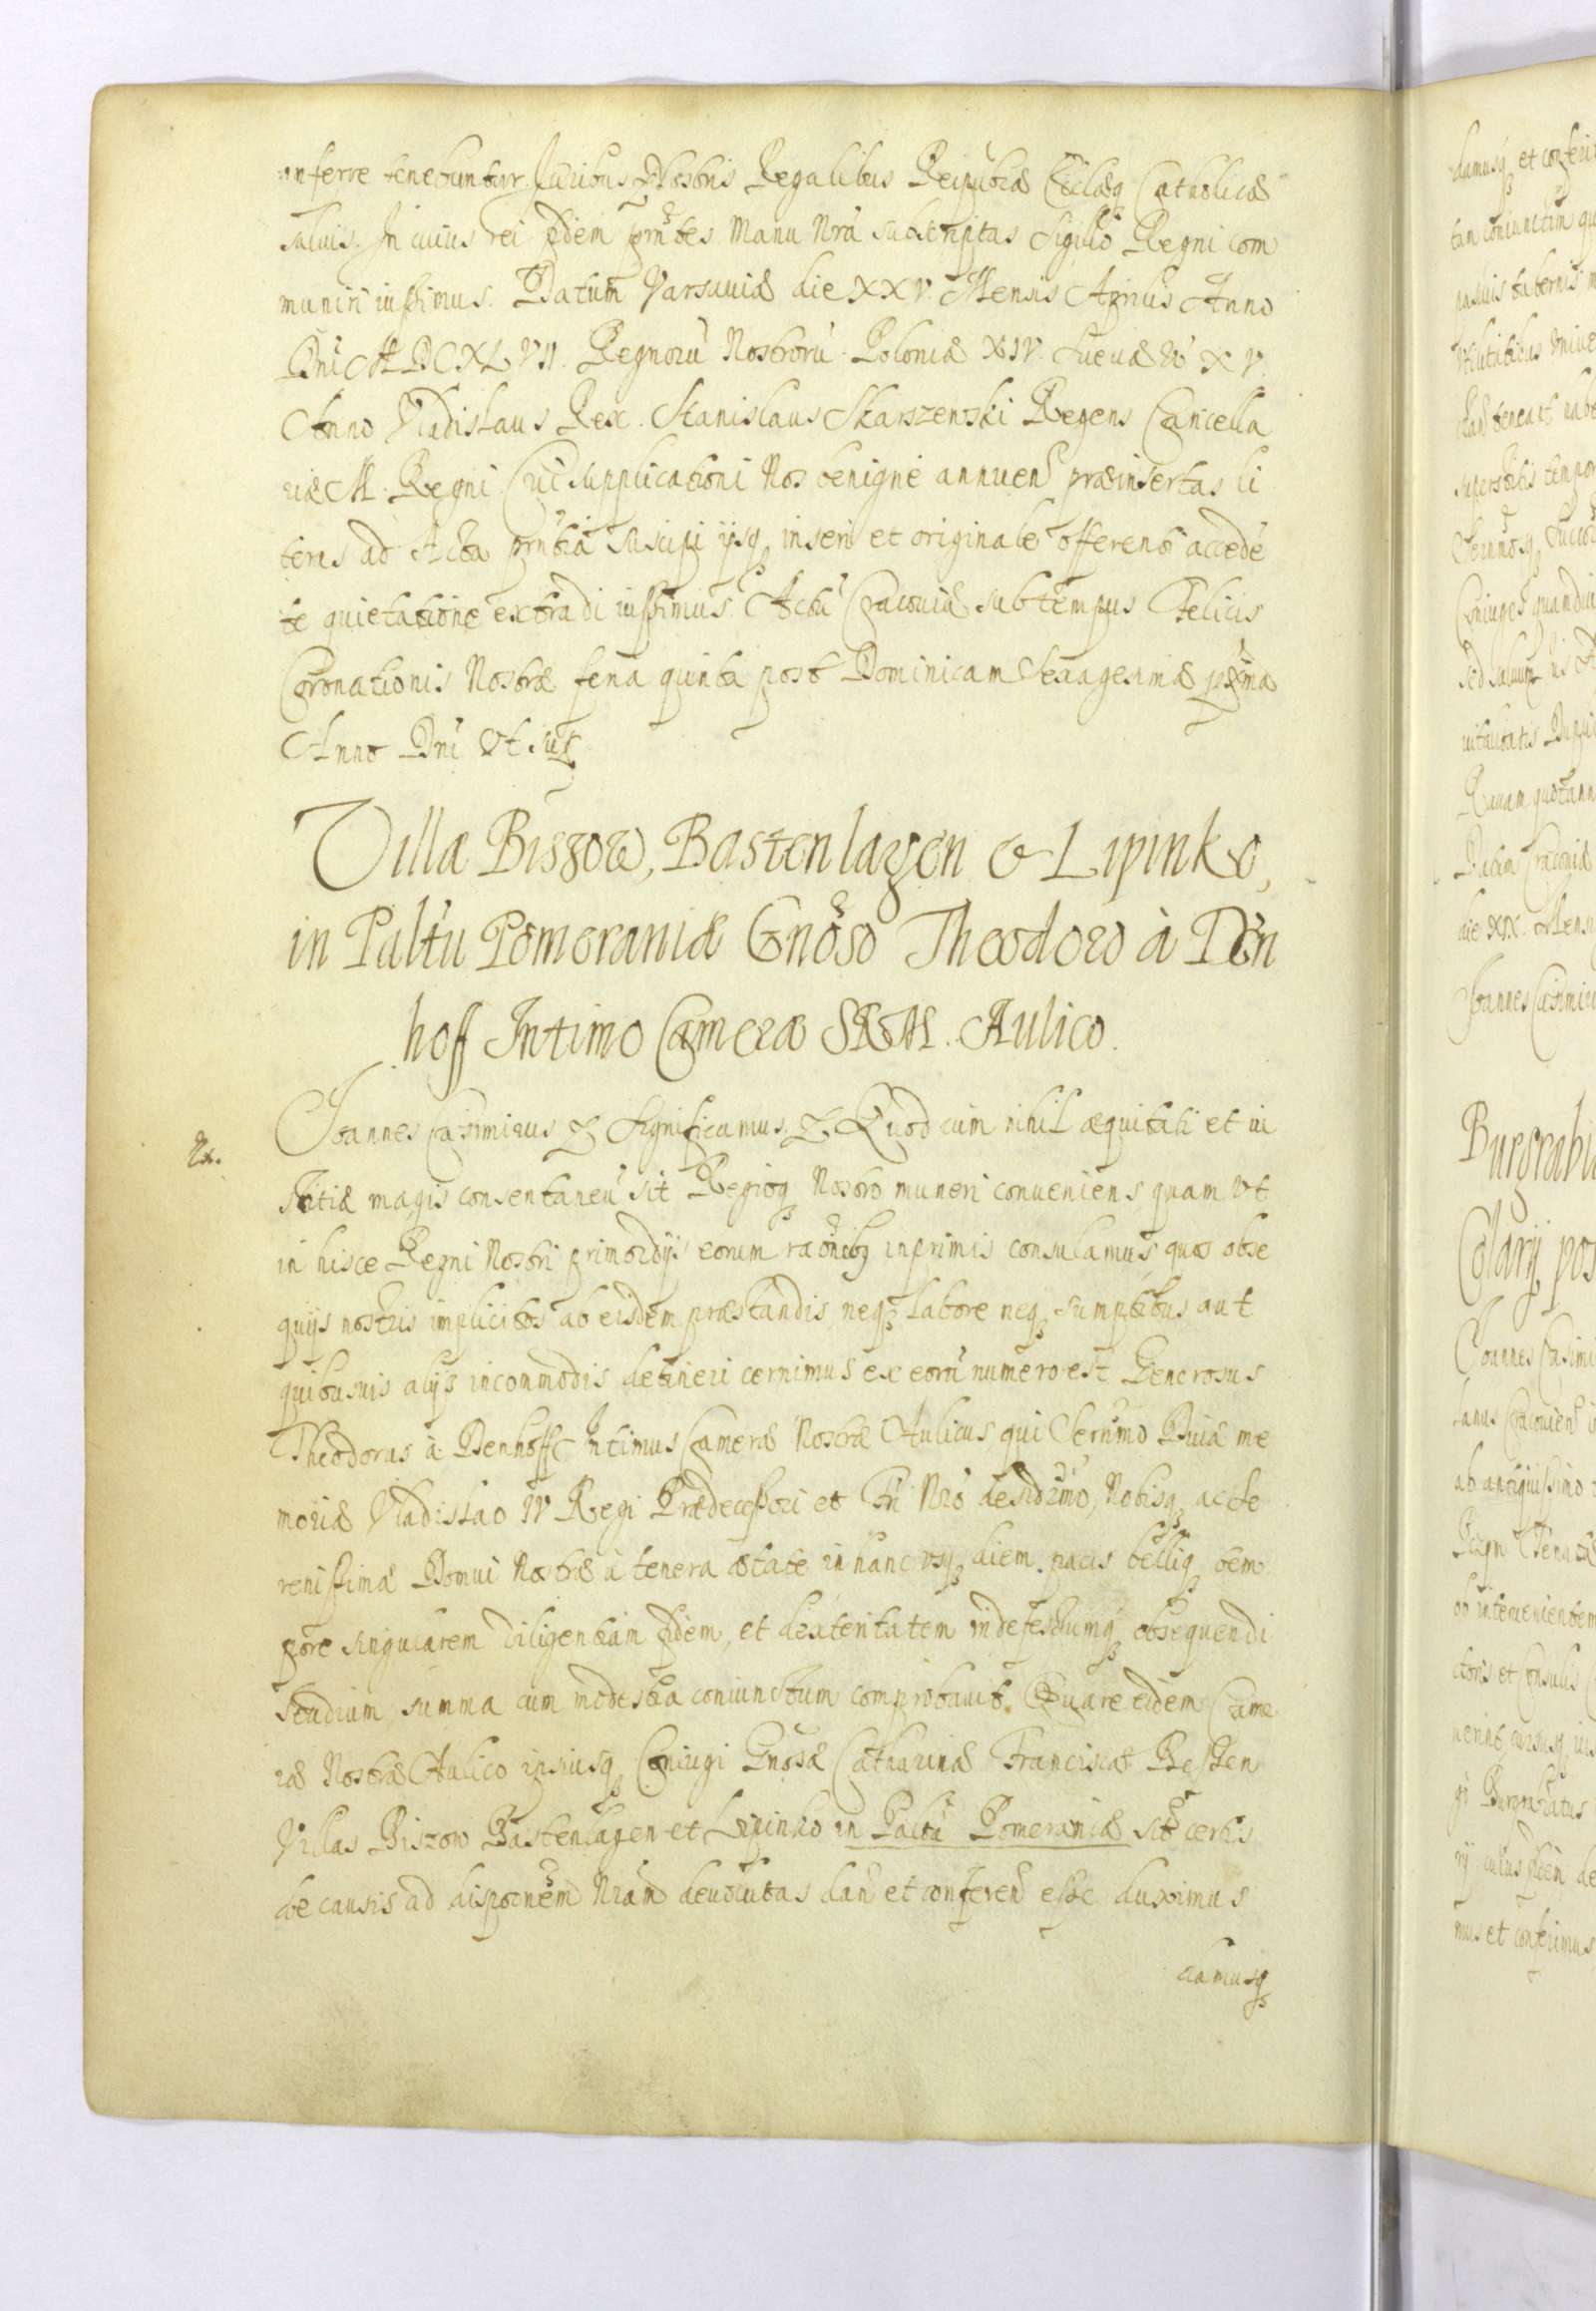 inferre tenebuntur. Juribus Nostris Regalibus Reipubcæ Ecclæq Catholicæ
saluis. In cuius rei fidem pntes Manu Nrã subscriptas Sigillo Regni com
muniri iussimus. Datum Varsauiæ die XXV. Mensis Aprilis Anno
Dni MDCXLVII. Regnorũ Nostrorũ Poloniæ XIV. Sueciæ Vo XV.
Anno Vladislaus Rex. Stanislaus Skarszewski Regens Cancella
riæ M. Regni Cui supplicationi Nos benignè annuen præinsertas li
teras ad Acta pntia suscipi ijsq inseri et originale offerenti accedẽ
te quietatione extradi iussimus. Actũ Cracouiæ sub tempus Felicis
Coronationis Nostræ feria quinta post Dominicam Sexagesimæ pxima
Anno Dni Vt sup.
Villæ Biszow, Bastenhagen & Lipinko,
in Paltũ Pomoraniæ Gnoso Theodoro à Dẽn
hoff Intimo Cameræ SRM. Aulico.
Joannes Casimirus & Significamus &. Quod cum nihil æquitati et iu
stitiæ magis consentaneũ sit Regioq Nostro muneri conueniens, quam vt
in hisce Regni Nostri primordijs eorum raonibq inprimis consulamus, quos obse
quijs nostris implicitos ab eisdem præstandis neq labore neq sumptibus aut
quibusuis alijs incommodis detineri cernimus ex eorũ numero est Generosus
Theodorus à Denhoff Intimus Cameræ Nostræ Aulicus qui Sernmo Diuæ me
moriæ Vladislao IV Regi Prædecessori et Fri Nro desidrmo, Nobisq ac Se
renissimæ Domui Nostræ à tenera ætate in hanc vsq diem pacis belliq tem
pore singularem diligentiam fidem, et dexteritatem indefessumq obsequendi
studium, summa cum modestia coniunctum comprobauit. Quare eidem Came
ræ Nostræ Aulico ipsiusq Coniugi Gnosæ Catharinæ Franciscæ Bessen
Villas Biszow Bastenhagen et Lipinko in Paltũ Pomeraniæ sitas certis
de causis ad disponem Nram deuolutas dan et conferen esse duximus
damusq